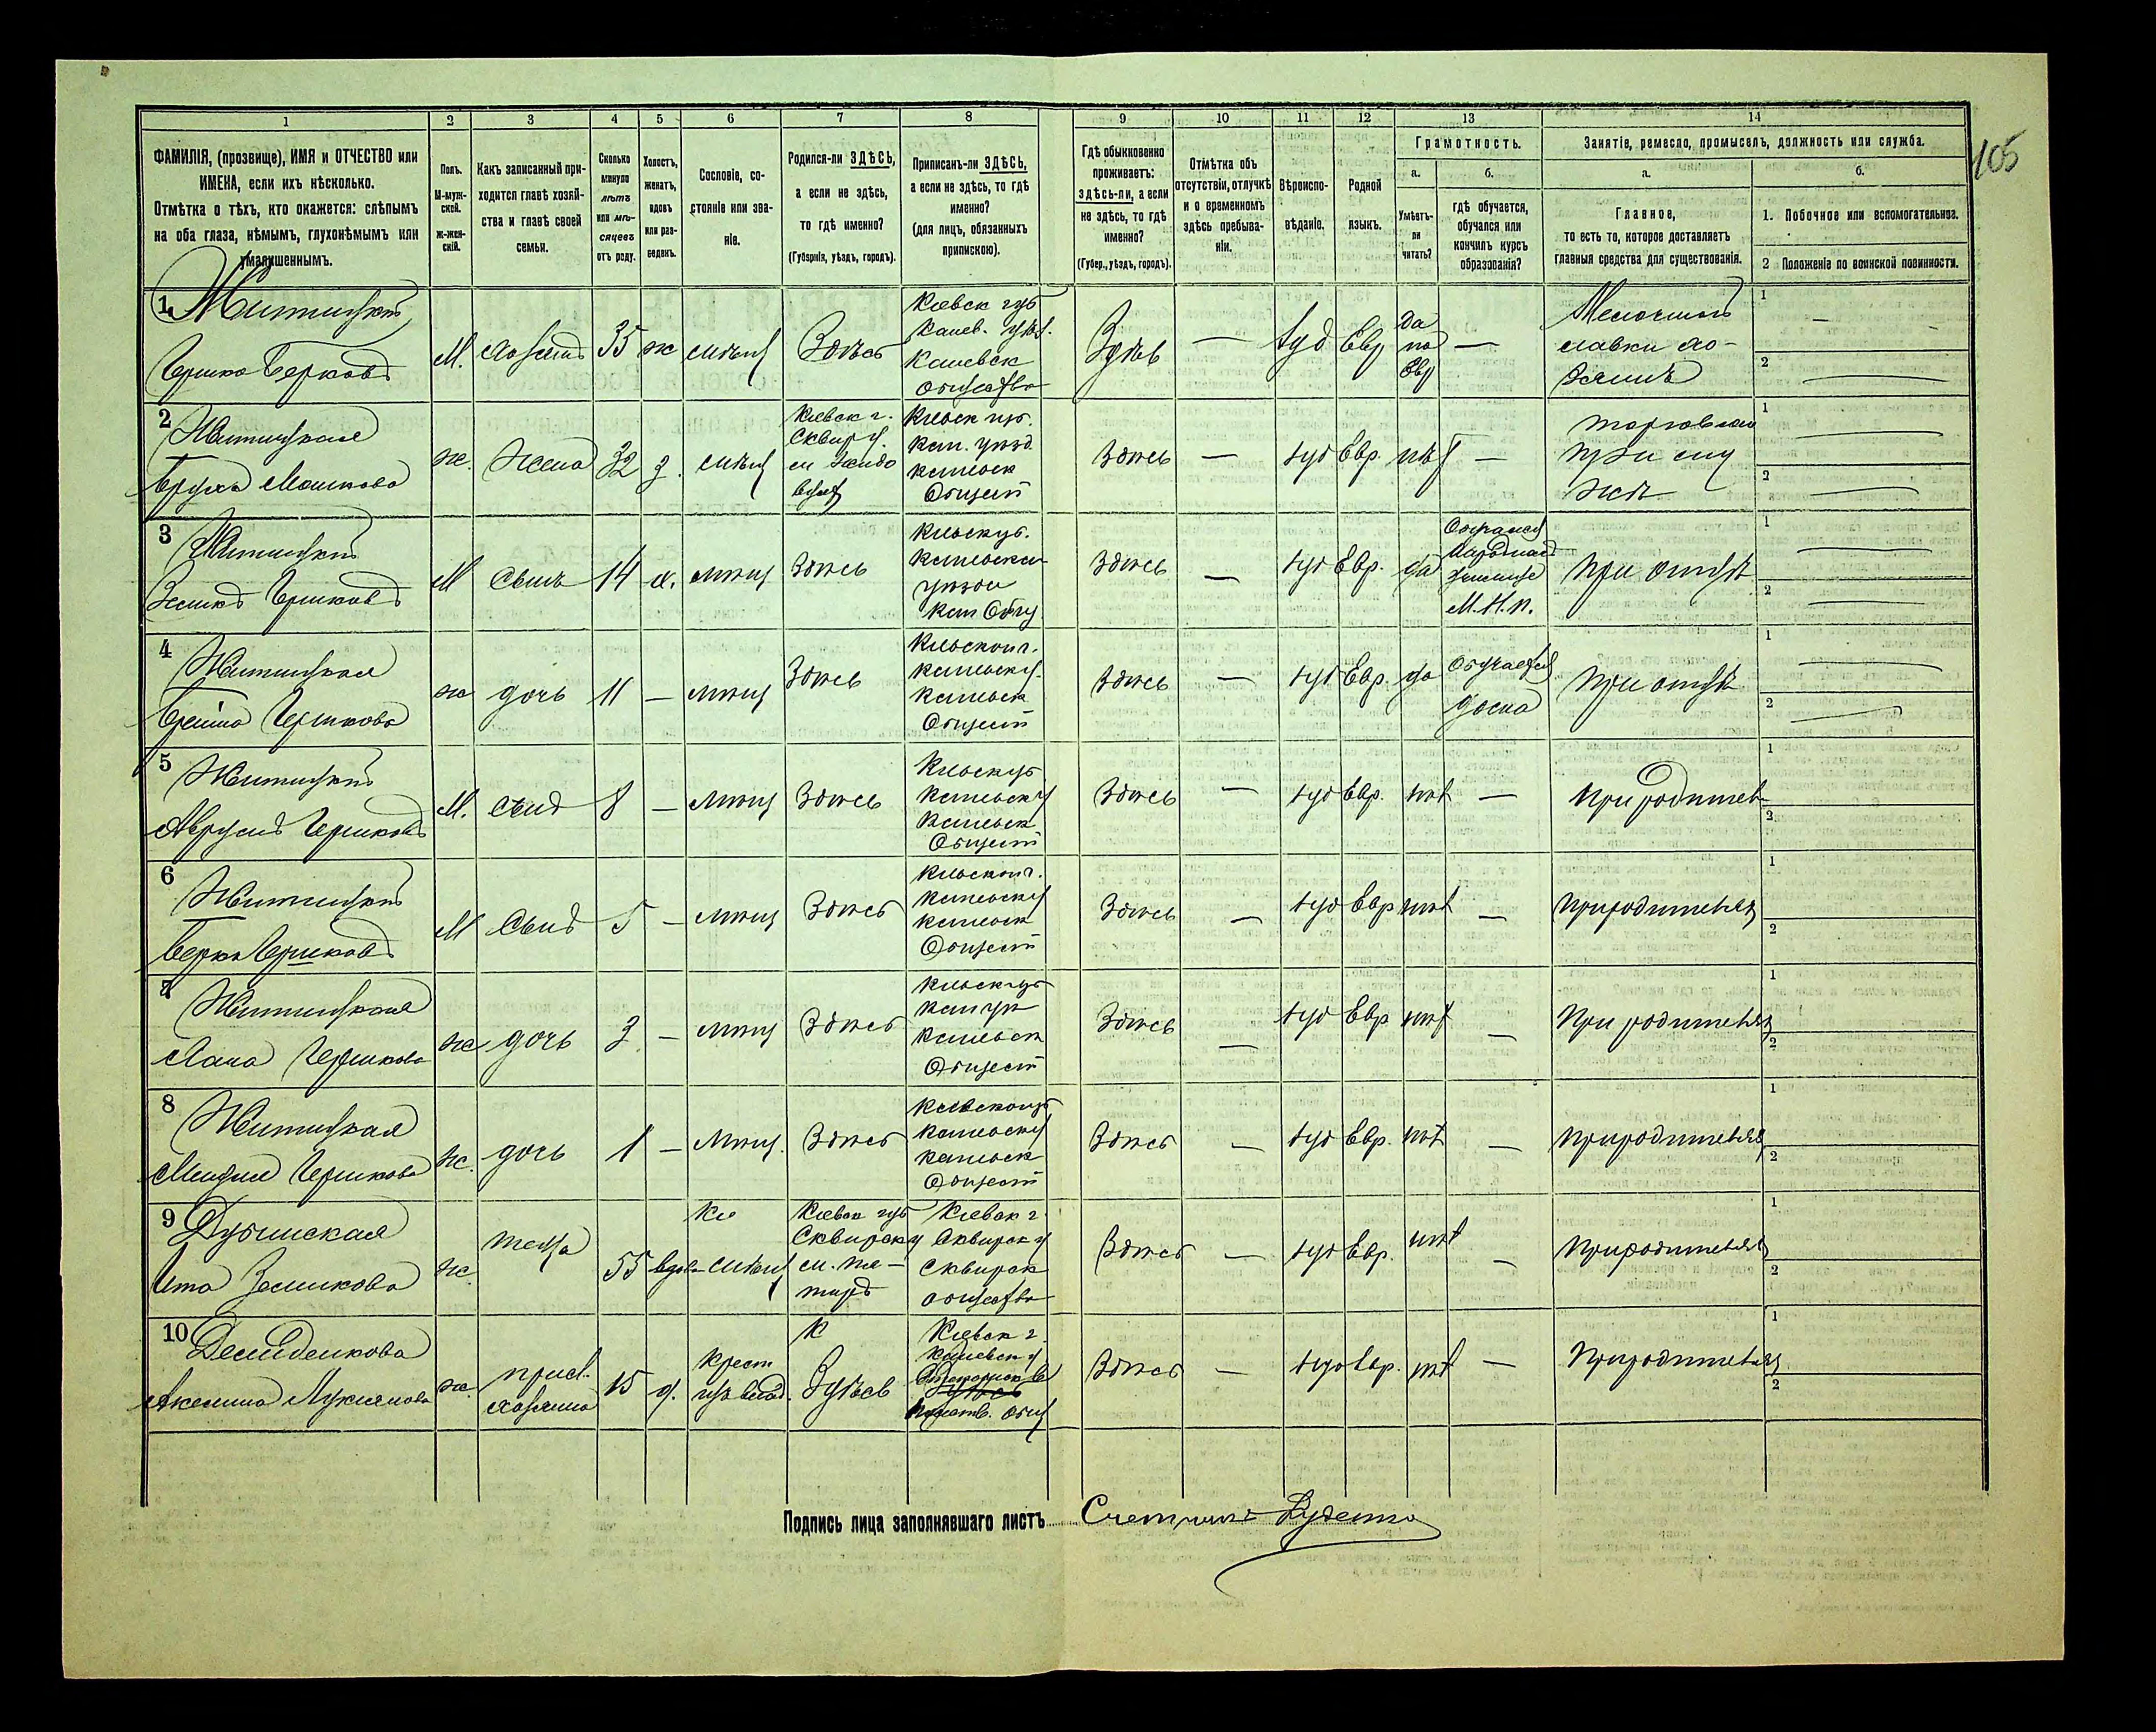 105
1 2 3 4 5 6 7 8 9 10 11 12 13 14
ФАМИЛІЯ, (прозвище), ИМЯ и ОТЧЕСТВО или
ИМЕНА, если ихъ нѣсколько.
Отмѣтка о тѣхъ, кто окажется: слѣпымъ
на оба глаза, нѣмымъ, глухонѣмымъ или
умалишеннымъ.
Полъ.
М-муж-
ской.
ж-жен-
скій.
Какъ записанный при-
ходится главѣ хозяй-
ства и главѣ своей
семьи.
Сколько
минуло
лѣтъ
или мѣ-
сяцевъ
отъ роду.
Холостъ,
женатъ,
вдовъ
или раз-
веденъ.
Сословіе, со-
стояніе или зва-
ніе.
Родился-ли ЗДѢСЬ,
а если не здѣсь,
то гдѣ именно?
(Губернія, уѣздъ, городъ).
Приписанъ-ли ЗДѢСЬ,
а если не здѣсь, то гдѣ
именно?
(для лицъ, обязанныхъ
припискою).
Гдѣ обыкновенно
проживаетъ:
здѣсь-ли, а если
не здѣсь, то гдѣ
именно?
(Губер., уѣздъ, городъ).
Отмѣтка объ
отсутствіи, отлучкѣ
и о временномъ
здѣсь пребыва-
ніи.
Вѣроиспо-
вѣданіе.
Родной
языкъ.
Грамотность.
а.
Умѣетъ-
ли
читать?
б.
гдѣ обучается,
обучался или
кончилъ курсъ
образованія?
Занятіе, ремесло, промыселъ, должность или служба.
а.
Главное,
то есть то, которое доставляетъ
главныя средства для существованія.
б.
1. Побочное или вспомогательное.
2 Положеніе по воинской повинности.
1 Житницкій
Гершко Берковъ
М. хозяинъ 35 ж мѣщ Здѣсь
Кіевск губ
Канев. уѣз.
Каневск
общество
Здѣсь — Іуд Евр
да
по
Евр
—
Мелочной
лавки хо-
зяинъ
1
2
2 Житницкая
Бруха Мошкова
ж. Жена 32 з. мѣщ
Кіевск г.
Сквир у.
Кіевск губ.
Кан. уѣзд
Каневск
Общест
Здѣсь — Іуд Евр. нѣт —
торговля
при му
жѣ
1
2
3 Житницкій
Гершковъ
М Сынъ 14 х. мѣщ Здѣсь
Кіевск губ.
Каневскаго
уѣзда
Кан Общ
Здѣсь — Іуд Евр. да
Народное
училище
М. Н. П.
При отцѣ
1
2
4 Житницкая
Гершкова
ж дочь 11 — мѣщ Здѣсь
Кіевской г.
Каневск у.
Каневск
Общест
Здѣсь — Іуд Евр. да
Обучается
дома
При отцѣ
1
2
5 Житницкій
Аврумъ Гершковъ
М. Сынъ 8 — мѣщ Здѣсь
Кіевск губ
Каневск у
Каневск
Общест
Здѣсь — Іуд Евр. нѣт —
При родител
1
2
6 Житницкій
Берко Гершковъ
М Сынъ 5 — мѣщ Здѣсь
Кіевской г.
Каневск у
Каневск
Общест
Здѣсь — Іуд Евр нѣт —
При родителях
1
2
7 Житницкая
Хана Гершкова
ж дочь 3 — мѣщ Здѣсь
Кіевск губ
Кан уѣ
Каневск
Общест
Здѣсь — Іуд Евр нѣт —
При родителях
1
2
8 Житницкая
Гершкова
ж. дочь 1 — мѣщ. Здѣсь
Кіевской губ
Каневск у
Каневск
Общест
Здѣсь — Іуд Евр. нѣт —
При родителях
1
2
9 Дубинская
Ита Зеликова
ж теща 55 вдова мѣщ
Кіевск губ
Сквирск у
Кіевск г
Сквирск у
Сквирск
общество
Здѣсь — Іуд Евр. нѣт —
При родителях
1
2
10 Демиденкова
Акилина Лукіянова
ж. 15 д.
крест
Здѣсь
Кіевск г.
Каневск у
Здѣсь
общ
Здѣсь — Іуд Евр. нѣт —
При родителях
1
2
Подпись лица заполнявшаго листъ Счетчикъ